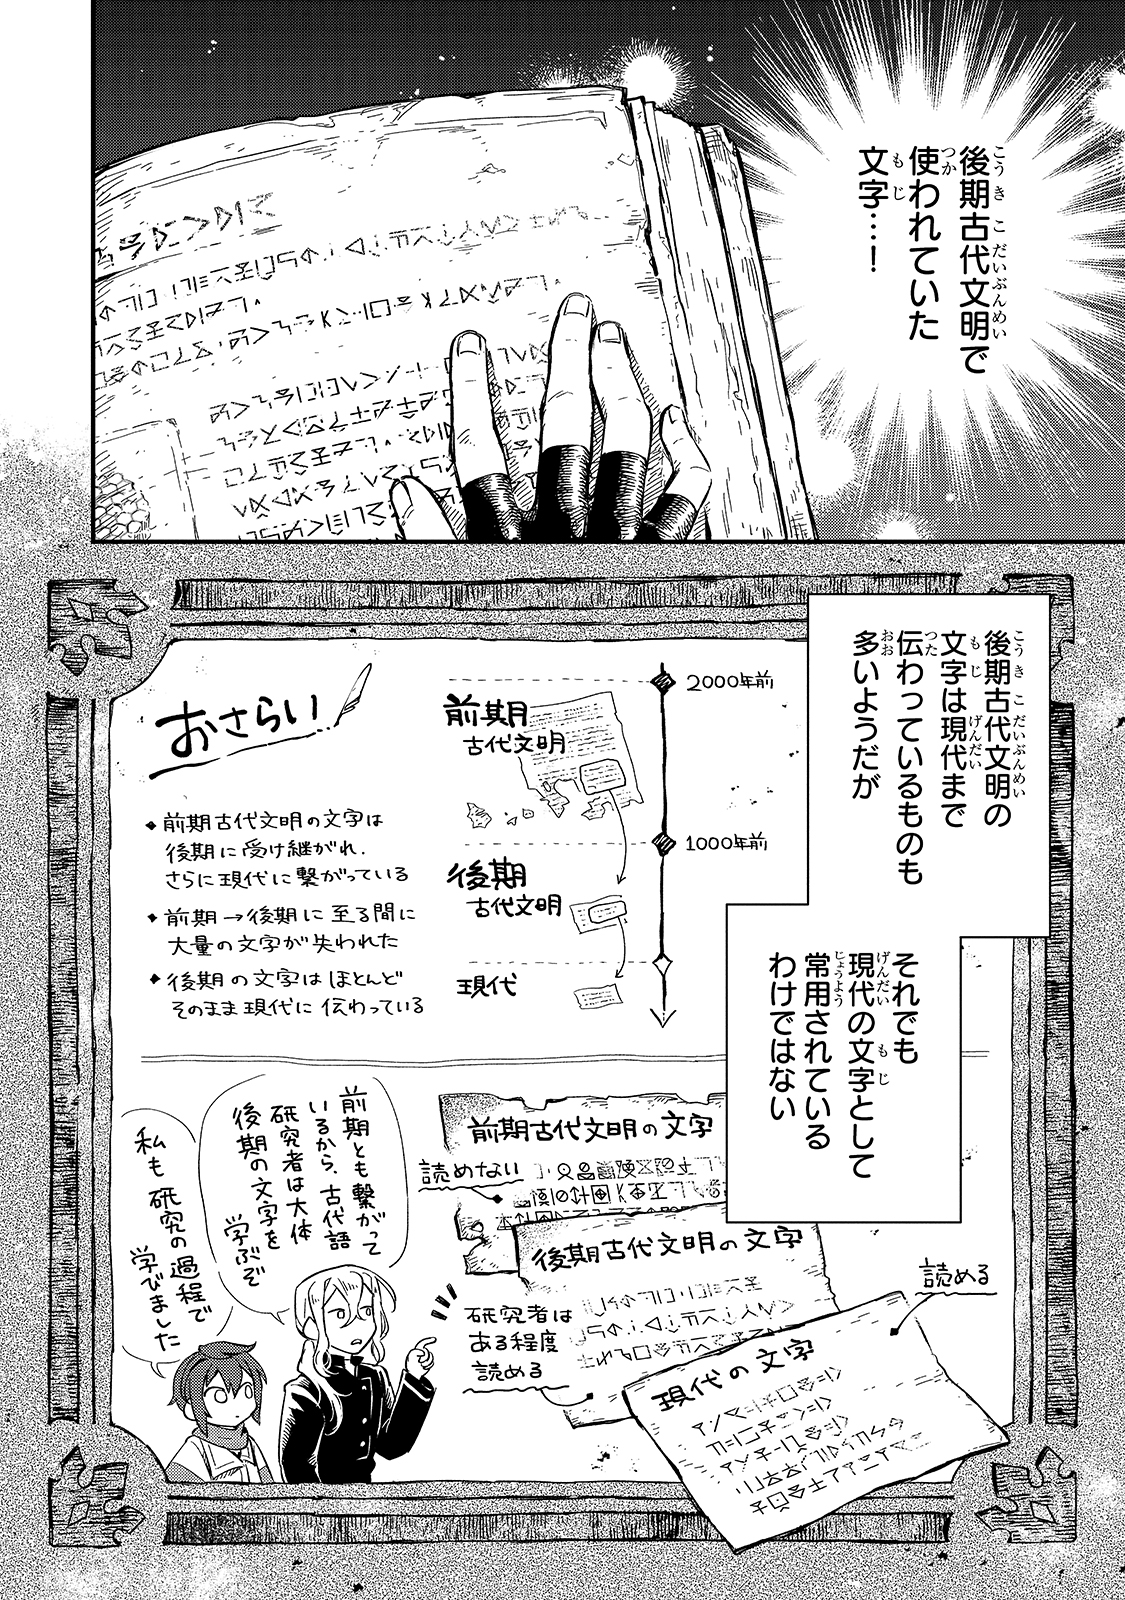 後期古代文明で
使われていた
文字…！
後期古代文明の
文字は現代まで
伝わっているものも
多いようだが
それでも
現代の文字として
常用されている
わけではない
おさらい
◆前期古代文明の文字は
後期に受け継がれ、
さらに現代に繋がっている
◆前期→後期に至る間に
大量の文字が失われた
◆後期の文字はほとんど
そのまま現代に伝わっている
前期
古代文明
後期
古代文明
現代
2000年前
1000年前
前期古代文明の文字
読めない
後期古代文明の文字
研究者は
ある程度
読める
現代の文字
読める
前期とも繋がって
いるから、古代語
研究者は大体
後期の文字を
学ぶぞ
私も研究の過程で
学びました